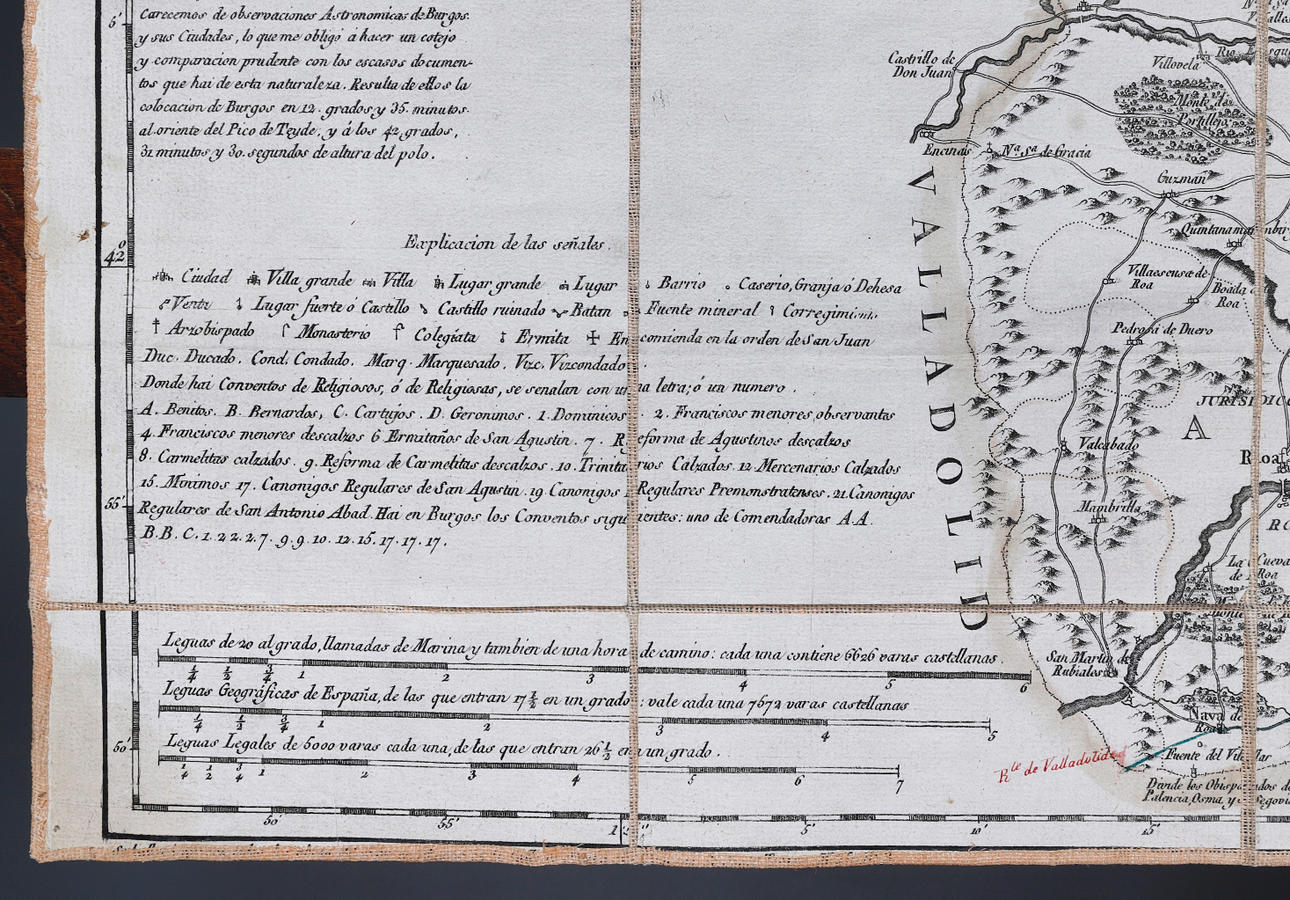 Carecemos de observaciones Astronomicas de Burgos.
y sus Ciudades, lo que me obligó á hacer un cotejo
y comparacion prudente con los escasos documen-
tos que hai de esta naturaleza. Resulta de ellos la
colocacion de Burgos en 12. grados y 35. minutos.
al oriente del Pico de Teyde, y á los 42 grados,
31 minutos y 30. segundos de altura del polo.
Explicacion de las señales.
Ciudad Villa grande Villa Lugar grande Lugar Barrio Caserio, Granja ó Dehesa
Venta Lugar fuerte ó Castillo Castillo ruinado Batan Fuente mineral
Arzobispado Monasterio Colegiata Ermita Encomienda en la orden de San Juan
Duc. Ducado. Cond. Condado. Marq. Marquesado. Vizc. Vizcondado.
Donde hai Conventos de Religiosos, ó de Religiosas, se senalan con una letra; ó un numero.
A. Benitos. B. Bernardos, C. Cartujos. D. Geronimos. 1. Dominicos. 2. Franciscos menores observantes
4. Franciscos menores descalzos 6 Ermitaños de San Agustin. 7. Reforma de Agustinos descalzos
8. Carmelitas calzados. 9. Reforma de Carmelitas descalzos. 10. Trinitarios Calzados. 12 Mercenarios Calzados
15. Minimos 17. Canonigos Regulares de San Agustin. 19. Canonigos Regulares Premonstratenses. 21. Canonigos
Regulares de San Antonio Abad. Hai en Burgos los Conventos siguientes: uno de Comendadoras A A.
B. B. C. 1. 2. 2. 2. 7. 9. 9. 10. 12. 15. 17. 17. 17.
Leguas de 20 al grado, llamadas de Marina y tambien de una hora de camino: cada una contiene 6626 varas castellanas.
1/4 1/2 3/4 1 2 3 4 5 6
Leguas Geográficas de España, de las que entran 17 1/2 en un grado: vale cada una 7572 varas castellanas
1/4 1/2 3/4 1 2 3 4 5
Leguas Legales de 5000 varas cada una, de las que entran 26 1/2 en un grado.
1/4 1/2 3/4 1 2 3 4 5 6 7
5'
42°
55'
50'
50'
55'
5'
10'
15'
Castrillo de
Don Juan
Villovela
Rio
Monte de
Portillejo
Encinas
Nª. Sª de Gracia
Guzman
VALLADOLID
Villaescusa de
Roa
Boada de
Roa
Pedrosa de Duero
A
Valcabado
Roa
Mambrilla
La Cueva
de Roa
San Martin de
Rubiales
Nava de
Roa
Fuente del
Rte de Valladolid
Divide los Obispados de
Palencia, Osma, y Segovia